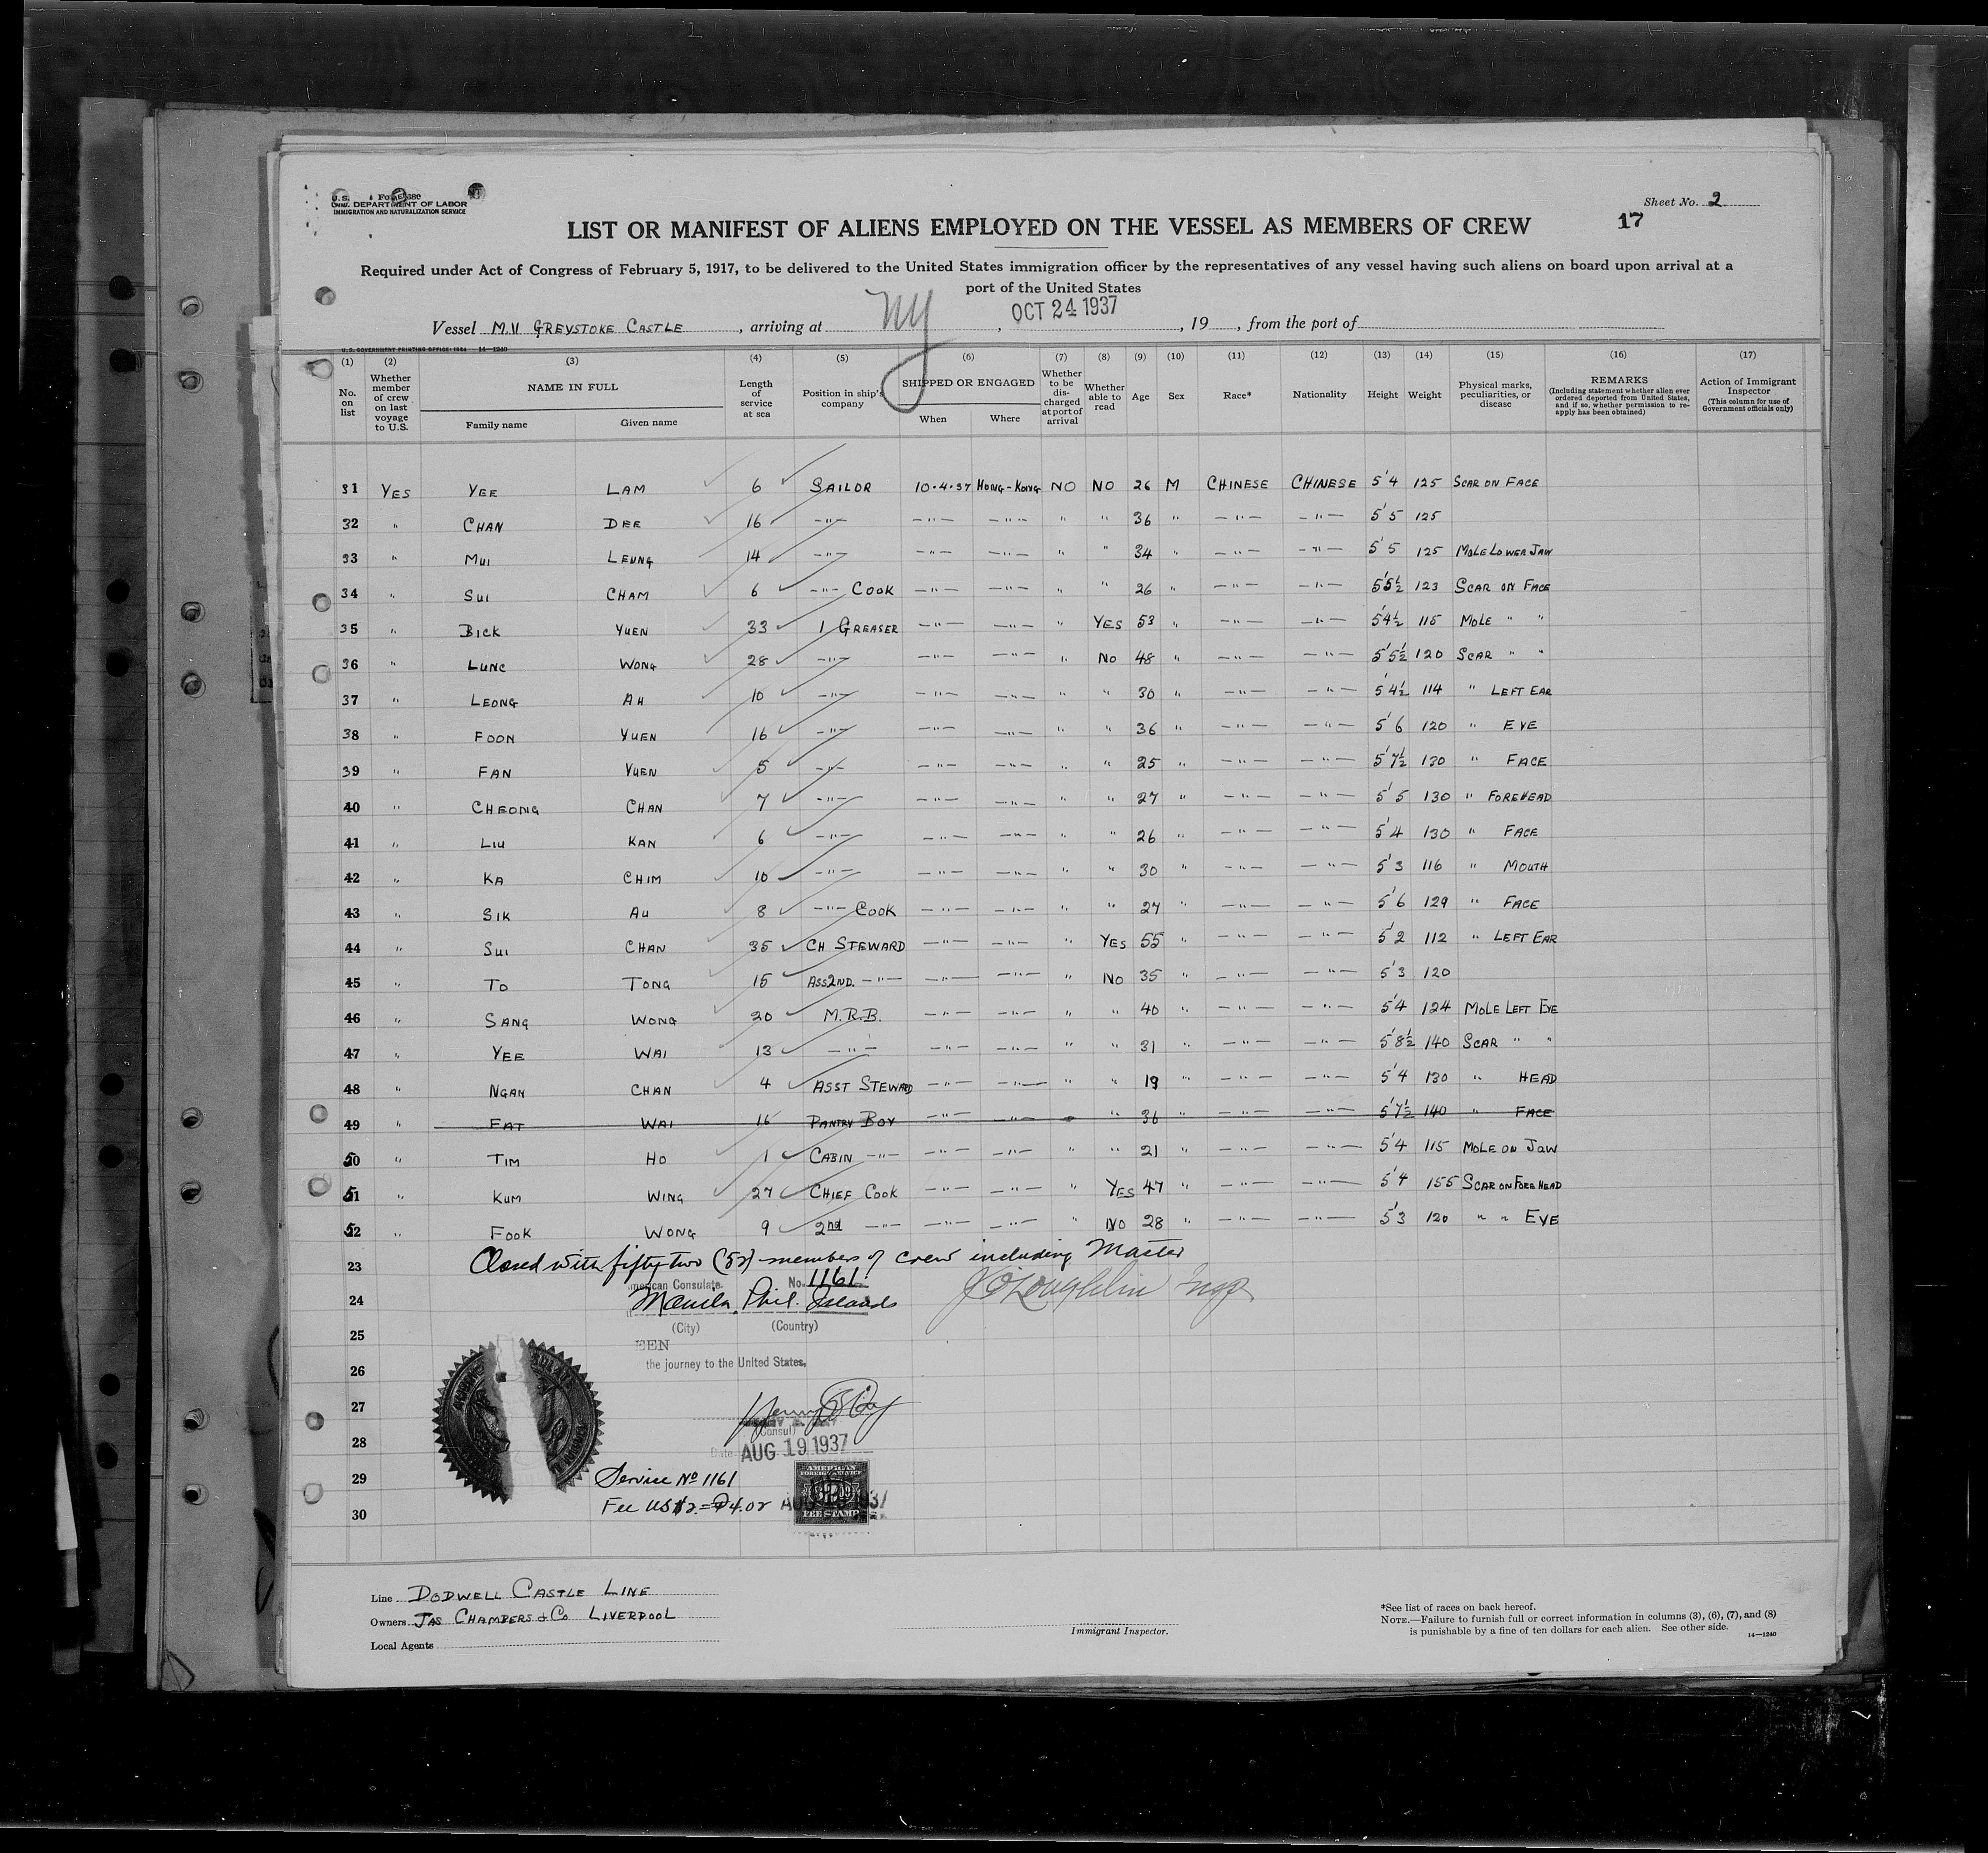 U.S. DEPARTMENT OF LABOR
IMMIGRATION AND NATURALIZATION SERVICE
Sheet No. 2
17
LIST OR MANIFEST OF ALIENS EMPLOYED ON THE VESSEL AS MEMBERS OF CREW
Required under Act of Congress of February 5, 1917, to be delivered to the United States immigration officer by the representatives of any vessel having such aliens on board upon arrival at a
port of the United States
Vessel M.V GREYSTOKE CASTLE, arriving at NY, OCT 24 1937, 19, from the port of
U.S. GOVERNMENT PRINTING OFFICE: 1934 14—1240
(1) No. on list
(2) Whether member of crew on last voyage to U.S.
(3) NAME IN FULL Family name Given name
(4) Length of service at sea
(5) Position in ship's company
(6) SHIPPED OR ENGAGED When Where
(7) Whether to be discharged at port of arrival
(8) Whether able to read
(9) Age
(10) Sex
(11) Race*
(12) Nationality
(13) Height
(14) Weight
(15) Physical marks, peculiarities, or disease
(16) REMARKS (Including statement whether alien ever ordered deported from United States, and if so, whether permission to reapply has been obtained)
(17) Action of Immigrant Inspector (This column for use of Government officials only)
31 YES YEE LAM 6 SAILOR 10.4.37 HONG-KONG NO NO 26 M CHINESE CHINESE 5'4 125 SCAR ON FACE
32 " CHAN DEE 16 —"— —"— —"— " " 36 " —"— —"— 5'5 125
33 " MUI LEUNG 14 —"— —"— —"— " " 34 " —"— —"— 5'5 125 MOLE LOWER JAW
34 " SUI CHAM 6 —"— COOK —"— —"— " " 26 " —"— —"— 5'5½ 123 SCAR ON FACE
35 " BICK YUEN 33 1 GREASER —"— —"— " YES 53 " —"— —"— 5'4½ 115 MOLE " "
36 " LUNC WONG 28 —"— —"— —"— " NO 48 " —"— —"— 5'5½ 120 SCAR " "
37 " LEONG AH 10 —"— —"— —"— " " 30 " —"— —"— 5'4½ 114 " LEFT EAR
38 " FOON YUEN 16 —"— —"— —"— " " 36 " —"— —"— 5'6 120 " EYE
39 " FAN YUEN 5 —"— —"— —"— " " 25 " —"— —"— 5'7½ 130 " FACE
40 " CHEONG CHAN 7 —"— —"— —"— " " 27 " —"— —"— 5'5 130 " FOREHEAD
41 " LIU KAN 6 —"— —"— —"— " " 26 " —"— —"— 5'4 130 " FACE
42 " KA CHIM 10 —"— —"— —"— " " 30 " —"— —"— 5'3 116 " MOUTH
43 " SIK AU 8 —"— COOK —"— —"— " " 27 " —"— —"— 5'6 129 " FACE
44 " SUI CHAN 35 CH STEWARD —"— —"— " YES 55 " —"— —"— 5'2 112 " LEFT EAR
45 " TO TONG 15 ASS2ND. —"— —"— —"— " NO 35 " —"— —"— 5'3 120
46 " SANG WONG 20 M.R.B. —"— —"— " " 40 " —"— —"— 5'4 124 MOLE LEFT EYE
47 " YEE WAI 13 —"— —"— —"— " " 31 " —"— —"— 5'8½ 140 SCAR " "
48 " NGAN CHAN 4 ASST STEWARD —"— —"— " " 19 " —"— —"— 5'4 130 " HEAD
49 " FAT WAI 16 PANTRY BOY —"— —"— " " 36 " —"— —"— 5'7½ 140 " FACE
50 " TIM HO 1 CABIN —"— —"— —"— " " 21 " —"— —"— 5'4 115 MOLE ON JAW
51 " KUM WING 27 CHIEF COOK —"— —"— " YES 47 " —"— —"— 5'4 155 SCAR ON FOREHEAD
52 " FOOK WONG 9 2nd —"— —"— —"— " NO 28 " —"— —"— 5'3 120 " " EYE
23 Closed with fifty-two (52) members of crew including Master
American Consulate No. 1161
24 Manila, Phil. Islands
(City) (Country)
25
EEN
26 the journey to the United States.
27
(Consul)
28 Date AUG 19 1937
29 Service No 1161
AMERICAN FOREIGN SERVICE FEE STAMP
Fee US $2.=₱4.02
30
Line DODWELL CASTLE LINE
Owners JAS CHAMBERS & CO LIVERPOOL
Local Agents
Immigrant Inspector.
*See list of races on back hereof.
NOTE.—Failure to furnish full or correct information in columns (3), (6), (7), and (8)
is punishable by a fine of ten dollars for each alien. See other side.
14—1240